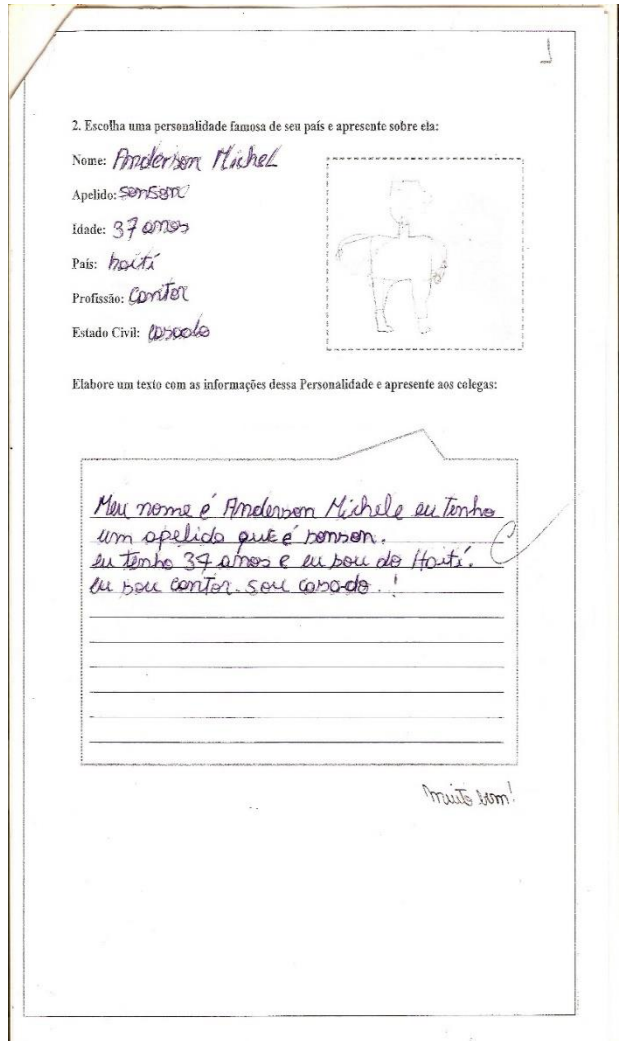 2. Escolha uma personalidade famosa de seu país e apresente sobre ela:
Nome: Anderson Michel
Apelido: sonson
Idade: 37 anos
País: haiti
Profissão: Cantor
Estado Civil: casado
Elabore um texto com as informações dessa Personalidade e apresente aos colegas:
Meu nome é Anderson Michele eu tenho
um apelido que é sonson.
eu tenho 37 anos e eu sou do Haití.
eu sou cantor. sou casado. !
Muito bom!